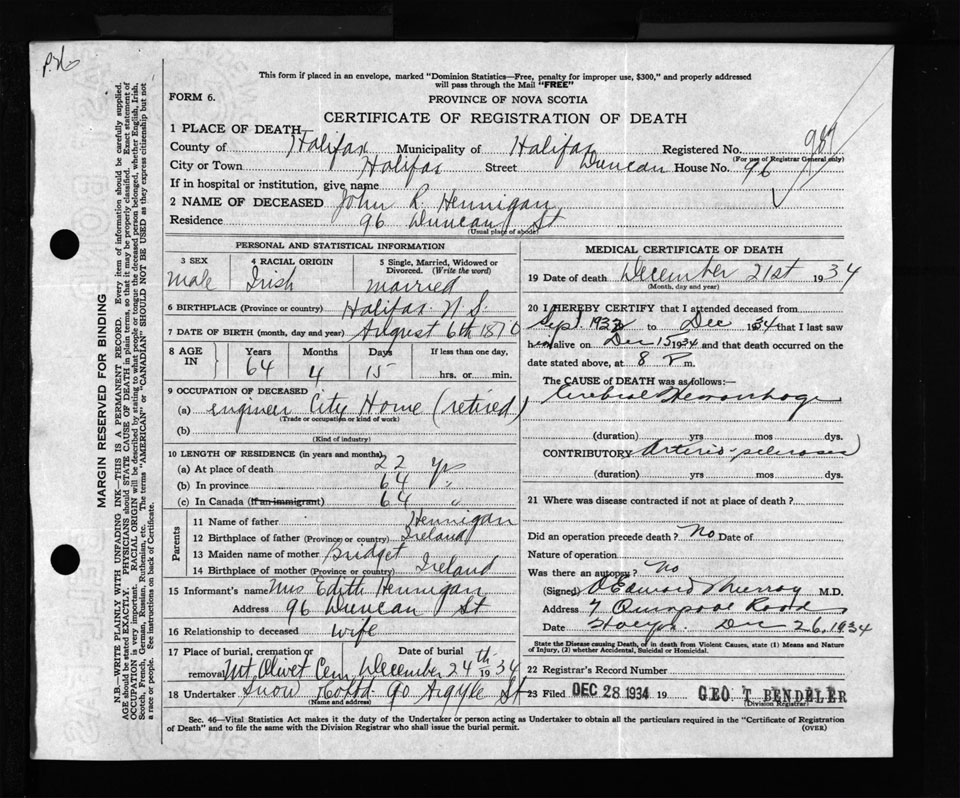 This form if placed in an envelope, marked "Dominion Statistics—Free, penalty for improper use, $300," and properly addressed
will pass through the Mail "FREE"
FORM 6.
PROVINCE OF NOVA SCOTIA
CERTIFICATE OF REGISTRATION OF DEATH
1 PLACE OF DEATH
County of Halifax Municipality of Halifax Registered No. 989
(For use of Registrar General only)
City or Town Halifax Street Duncan House No. 96
If in hospital or institution, give name
2 NAME OF DECEASED John R. Hennigan
Residence 96 Duncan St
(Usual place of abode)
PERSONAL AND STATISTICAL INFORMATION
3 SEX male
4 RACIAL ORIGIN Irish
5 Single, Married, Widowed or Divorced. (Write the word) married
6 BIRTHPLACE (Province or country) Halifax N.S.
7 DATE OF BIRTH (month, day and year) August 6th 1870
8 AGE IN Years 64 Months 4 Days 15 If less than one day, hrs. or min.
9 OCCUPATION OF DECEASED
(a) engineer City Home (retired)
(Trade or occupation or kind of work)
(b)
(Kind of industry)
10 LENGTH OF RESIDENCE (in years and months)
(a) At place of death 22 yrs
(b) In province 64 "
(c) In Canada (If an immigrant) 64 "
Parents
11 Name of father Hennigan
12 Birthplace of father (Province or country) Ireland
13 Maiden name of mother Bridget
14 Birthplace of mother (Province or country) Ireland
15 Informant's name Mrs Edith Hennigan
Address 96 Duncan St
16 Relationship to deceased wife
17 Place of burial, cremation or removal Mt Olivet Cem Date of burial December 24th 1934
18 Undertaker Snow & Co Ltd 90 Argyle St
(Name and address)
MEDICAL CERTIFICATE OF DEATH
19 Date of death December 21st 1934
(Month, day and year)
20 I HEREBY CERTIFY that I attended deceased from
Sept. 1933 to Dec 1934 that I last saw
him alive on Dec 15 1934 and that death occurred on the
date stated above, at 8 P m.
The CAUSE OF DEATH was as follows:—
Cerebral Hemorrhage
(duration) yrs mos dys.
CONTRIBUTORY Arterio-sclerosis
(duration) yrs mos dys.
21 Where was disease contracted if not at place of death?
Did an operation precede death? No Date of
Nature of operation
Was there an autopsy? No
(Signed) Edward Murray M.D.
Address 7 Quinpool Road
Date Hfx Dec 26, 1934
State the Disease causing Death, or in death from Violent Causes, state (1) Means and Nature
of Injury, (2) whether Accidental, Suicidal or Homicidal.
22 Registrar's Record Number
23 Filed DEC 28 1934 19 GEO T BENDELER
(Division Registrar)
Sec. 46—Vital Statistics Act makes it the duty of the Undertaker or person acting as Undertaker to obtain all the particulars required in the "Certificate of Registration
of Death" and to file the same with the Division Registrar who shall issue the burial permit. (OVER)
MARGIN RESERVED FOR BINDING
N.B.—WRITE PLAINLY WITH UNFADING INK—THIS IS A PERMANENT RECORD. Every item of information should be carefully supplied.
AGE should be stated EXACTLY. PHYSICIANS should STATE CAUSE OF DEATH in plain terms, so that it may be properly classified. Exact statement of
OCCUPATION is very important. RACIAL ORIGIN will be described by stating to what people or tongue the deceased person belonged, whether English, Irish,
Scotch, French, German, Russian, Ruthenian, etc. The terms "AMERICAN" or "CANADIAN" SHOULD NOT BE USED as they express citizenship but not
a race or people. See instructions on back of Certificate.